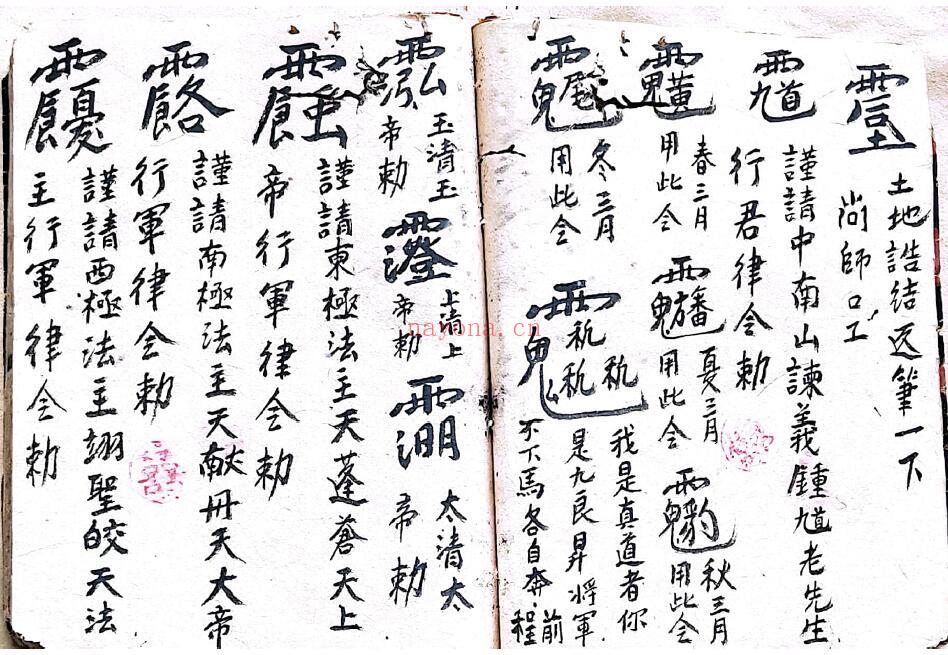 土地誥結筆一下
尚師口工
謹請中南山諫義鍾馗老先生
行君律令勅
春三月
用此令
夏三月
用此令
秋三月
用此令
冬三月
用此令
我是真道者你
是九良昇將軍
不下馬各自奔前程
玉清玉
帝勅
上清上
帝勅
太清太
帝勅
謹請東極法主天蓬蒼天上
帝行軍律令勅
謹請南極法主天献丹天大帝
行軍律令勅
謹請西極法主翊聖皎天法
主行軍律令勅
nayona.cn